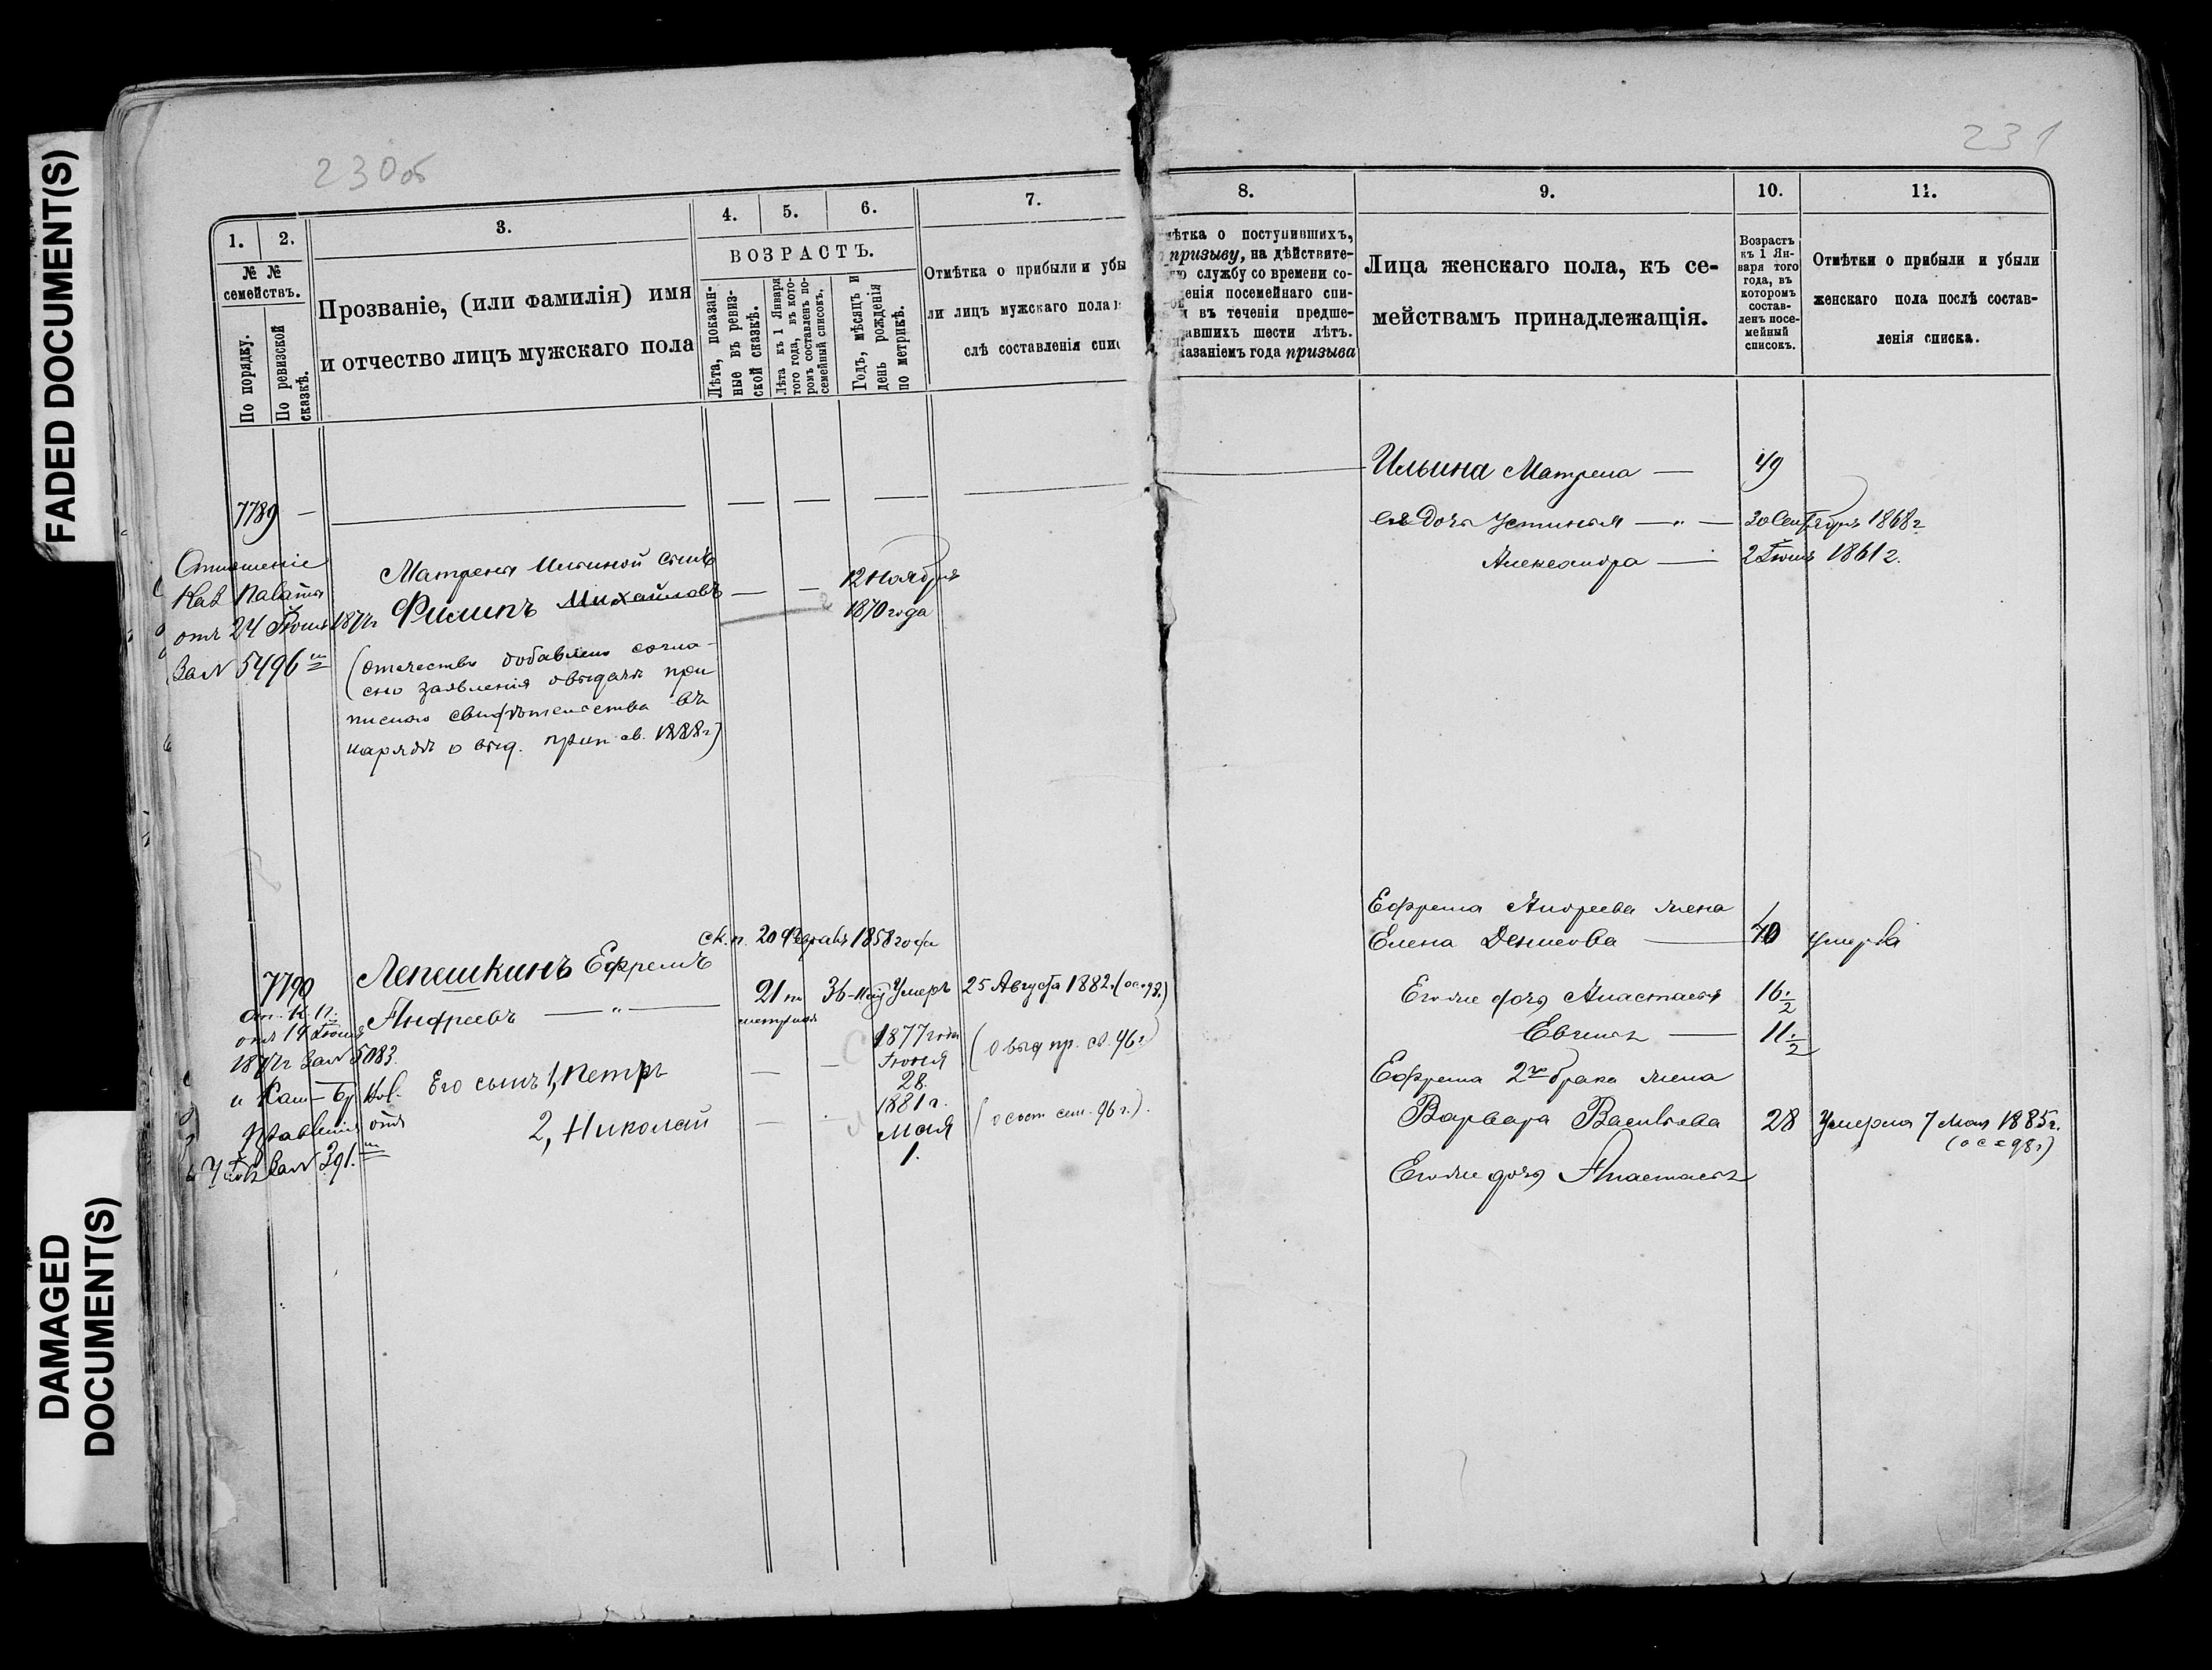 FADED DOCUMENT(S)
DAMAGED
DOCUMENT(S)
230об
1.
2.
3.
4.
5.
6.
7.
№ №
семействъ.
По порядку.
По ревизской
сказкѣ.
Прозваніе, (или фамилія) имя
и отчество лицъ мужскаго пола
ВОЗРАСТЪ.
Лѣта, показан-
ные въ ревиз-
ской сказкѣ.
Лѣта къ 1 Января
того года, въ кото-
ромъ составленъ по-
семейный списокъ.
Годъ, мѣсяцъ и
день рожденія
по метрикѣ.
Отмѣтка о прибыли и убы
ли лицъ мужскаго пола п
слѣ составленія спис
7789 —
Отношеніе
Каз Палаты
отъ 24 Іюня 1871г
За № 5496
Матрены Ильиной сынъ
Филипъ Михайловъ — —
12 Ноября
1870 года
(отечество добавлено согла-
сно заявленія о выдачѣ при
писного свидѣтельства въ
нарядѣ о выд. прип св. 1888г)
ск. п. 20 Февраля 1858 года
7790
Лепешкинъ Ефремъ
Андреевъ — " —
21
36
Умеръ 25 Августа 1882.
от. К. П.
отъ 19 Іюня
1871г За № 5083.
и Кам—
отъ
За № 391.
Его сынъ 1, Петръ — —
1877 года
Іюня
28.
(о выд пр. св. 96г.)
2, Николай —
1881 г.
Мая
1.
(о сост сем. 96 г.).
231
8.
9.
10.
11.
мѣтка о поступившихъ,
призыву, на дѣйствите-
ую службу со времени со-
енія посемейнаго спи-
и въ теченіи предше-
авшихъ шести лѣтъ.
казаніемъ года призыва
Лица женскаго пола, къ се-
мействамъ принадлежащія.
Возрастъ
къ 1 Ян-
варя того
года, въ
которомъ
состав-
ленъ посе-
мейный
списокъ.
Отмѣтки о прибыли и убыли
женскаго пола послѣ состав-
ленія списка.
Ильина Матрена — 49
ея дочь Устинья — " — 30 Сентября 1868 г
Александра — 2 Іюня 1861 г.
Ефрема Андреева жена
Елена Денисова — 40 умерла
Его же дочь Анастасія 16 1/2
Евгенія — 11 1/2
Ефрема 2го брака жена
Варвара Васильева 28 Умерла 7 Мая 1885 г.
(о с с 98 г)
Его же дочь Анастасія